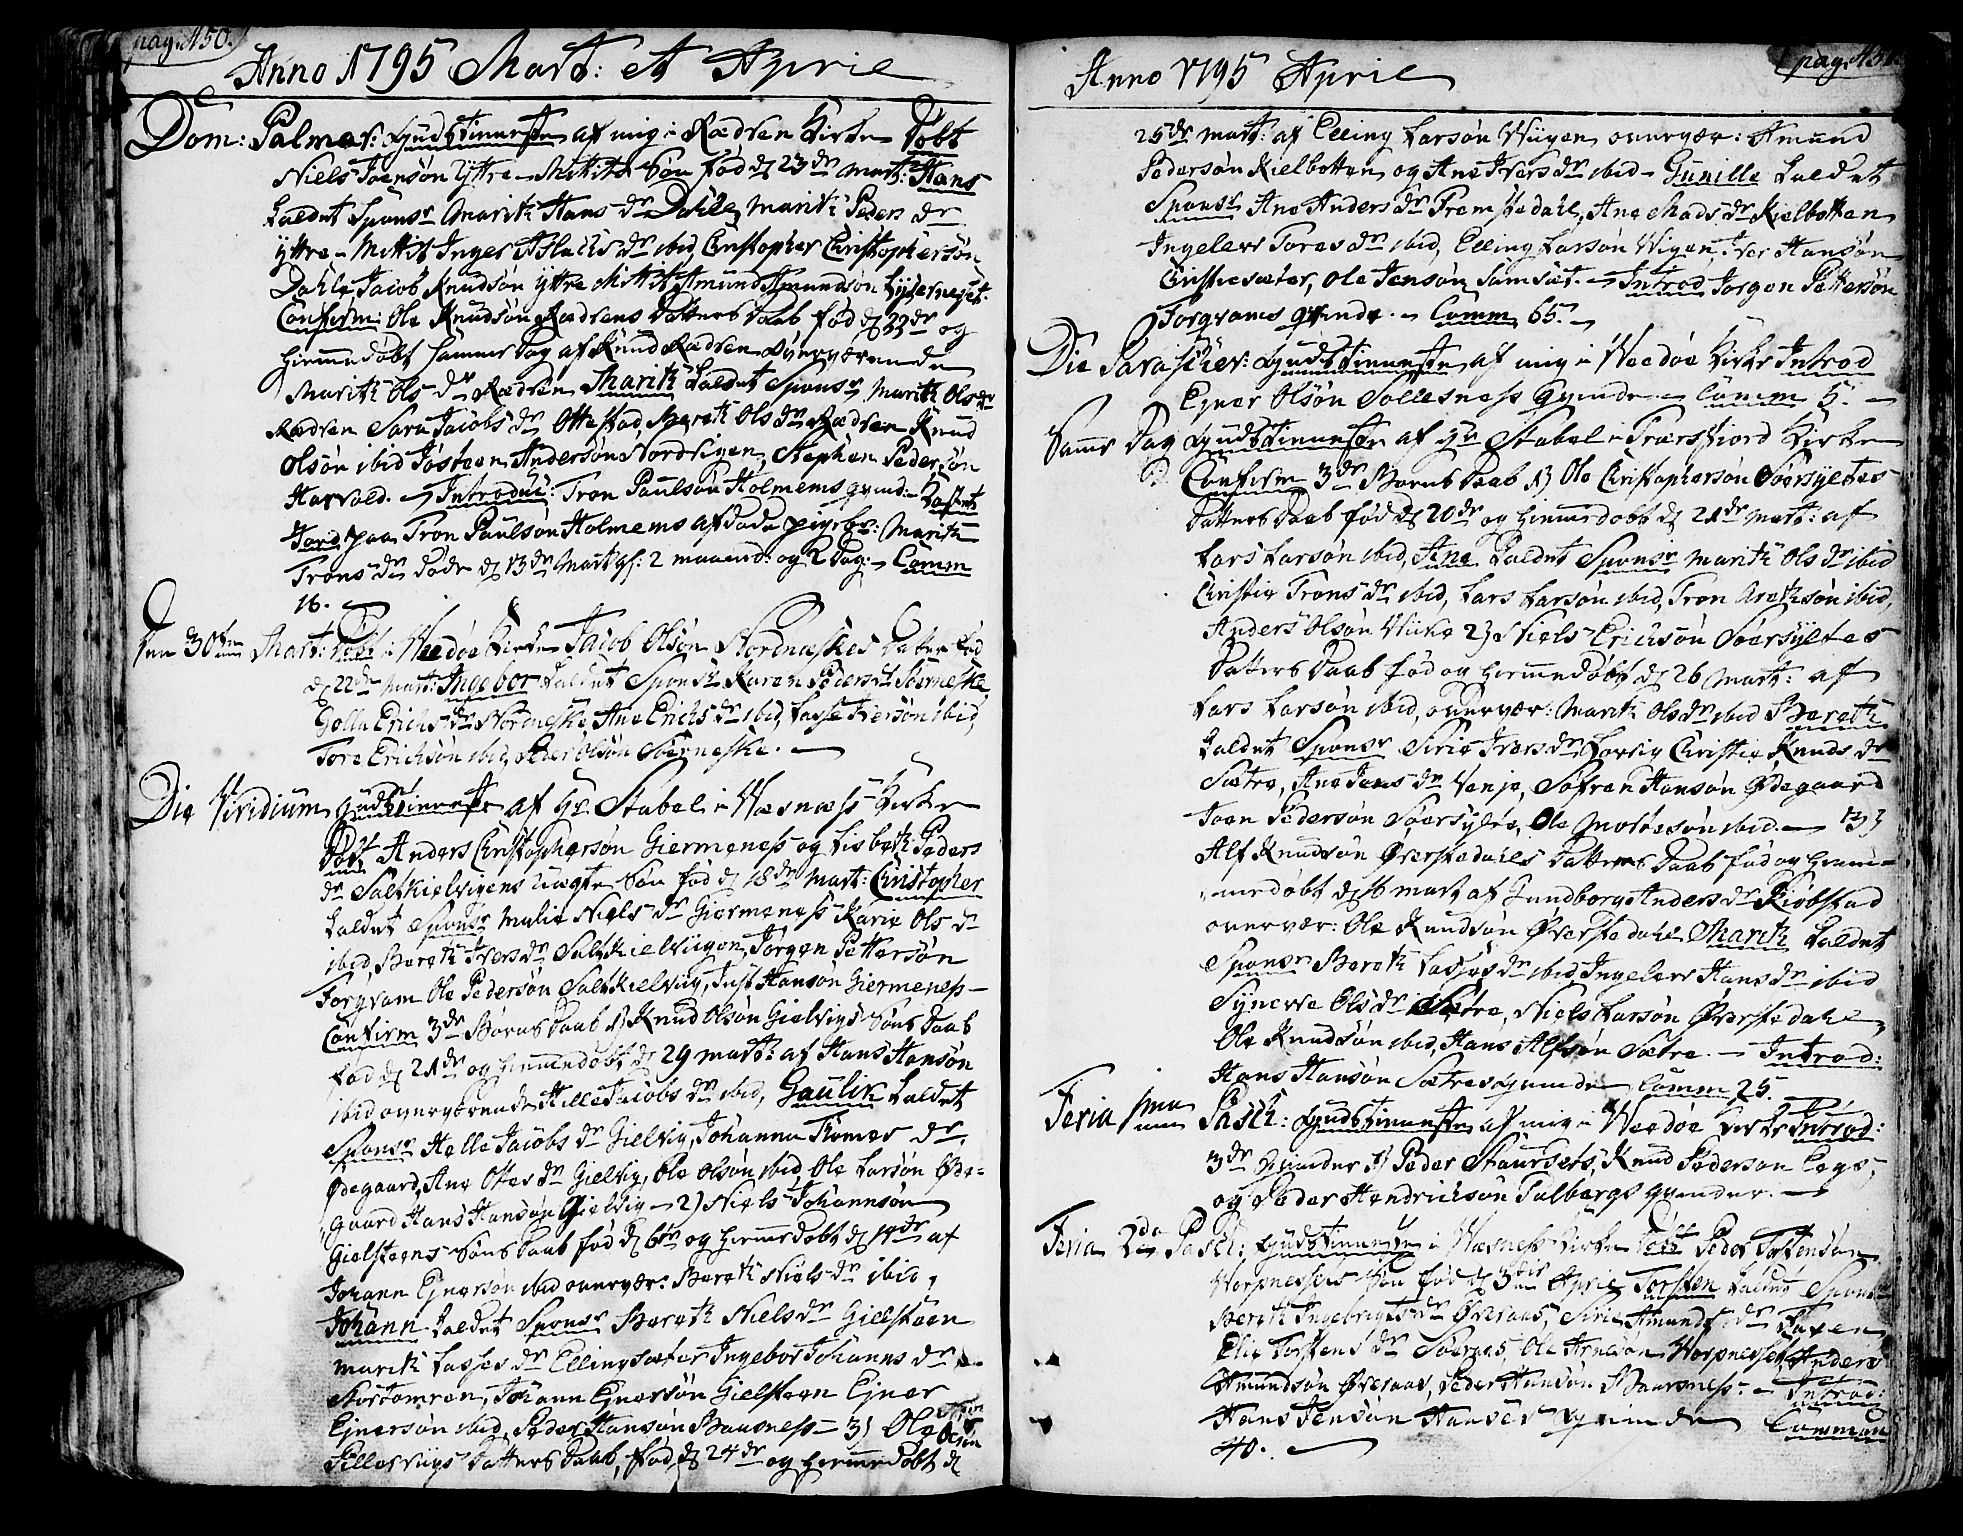 pag. 450.
Anno 1795 Mart: et April
Dom: Palmar: Gudstienneste af mig i Rødven Kirke Døbt
Niels Joensøn Yttre-Mittets Søn fød d 23de Mart: Hans
kaldet Sponsr Marith Hans dr Dahle, Marith Peders dr
Yttre-Mittet Inger Aslachs dr ibid, Christopher Christophersøn
Dahle, Jacob Knudsøn Yttre Mittet Amund Amundsøn
Confirm: Ole Knudsøn Rødvens Datters Daab fød d 22de og
hiemmedøbt samme Dag af Knud Rødven overværende
Marith Ols dr Rødven Marith kaldet Sponsr Marith Ols dr
Rødven Sara Jacobs dr Ottestad, Bereth Ols dr Rødven Knud
Olsøn ibid Josteen Andersøn Nordvigen, Stephen Pedersøn
Harvold. - Introduc: Tron Paulsøn Holmems qvinde Kastet
Jord paa Tron Paulsøn Holmems afdøde pigebr: Marith
Trons dr døde d 13de Mart gl: 2 maaned: og 2 Dag: - Comm
16. -
Den 30ten Mart: Døbt i Weedøe Kirke Jacob Olsøn Nordnæskes Datter fød
d 22de Mart: Ingebor kaldet Sponsr Karen Peders dr Sørneske,
Golla Erichs dr Nordneske Ane Erichs dr ibid, Lasse Iversøn ibid,
Tore Erichsøn ibid, Peder Olsøn Sørneske. -
Die Viridium Gudstienneste af Hr. Stabel i Wæsnæss Kirke
Døbt Anders Christophersøn Giermeness og Lisbeth Peders
dr Saltkielvigens uægte Søn fød d 18de Mart: Christopher
kaldet Sponsr Malie Niels dr Giermeness Karie Ols dr
ibid, Bereth Ivers dr Saltkielviigen, Jørgen Pettersøn
Torgram Ole Pedersøn Saltkielviig, Just Hansøn Giermeness -
Confirm 3de Børns Daab 1) Knud Olsøn Gielvigs Søns Daab
fød d 21de og hiemmedøbt d 29 Mart: af Hans Hansøn
ibid overværende Hille Jacobs dr ibid, Gaulik kaldet
Sponsr Helle Jacobs dr Gielvig, Johanna Thomæ dr
Ødegaard, Ane Ottes dr Gielvig, Ole Olsøn ibid Ole Larsøn Øde-
gaard Hans Hansøn Gielvig - 2) Niels Johannsøn
Gielsteens Søns Daab fød d 6te og hiemmedøbt d 14de af
Johann Ejnersøn ibid overvær: Bereth Niels dr ibid,
Johann kaldet Sponsr Bereth Niels dr Gielsteen
Marith Lasses dr Ellingsæter Ingebor Johanns dr
Johann Ejnersøn Gielsteen Ejner
Ejnersøn ibid, Peder Hansøn Baasness - 3) Ole Olsøn
Datters Daab, fød d 24de og hiemmedøbt d
pag. 451.
Anno 1795 April
25de Mart: af Elling Larsøn Wiigen overvær: Amund
Pedersøn Kielbotten og Ane Ivers dr ibid - Gunille kaldet
Sponsr Ane Anders dr Fremstedahl, Ane Mads dr Kielbotten
Ingeleer Tores dr ibid, Elling Larsøn Wigen, Iver Hansøn
Christiesæter, Ole Jensøn Samset. - Introd Jørgen Pettersøn
Torgrams qvinde. - Comm 65. -
Die Parascher: Gudstienneste af mig i Weedøe Kirke Introd
Ejner Olsøn Søllesness Qvinde - Comm 5. -
Samme Dag Gudstienneste af Hr Stabel i Træsfiord Kirke
Confirm 3de Børns Daab 1) Ole Christophersøn Soersyltes
Datters Daab fød d 20de og hiemmedøbt d 21de Mart: af
Lars Larsøn ibid, Ane kaldet Sponsr Marith Ols dr ibid
Christie Trons dr ibid, Lars Larsøn ibid, Tron ibid,
Anders Olsøn Wiike 2) Niels Erichsøn Soersyltes
Datters Daab fød og hiemmedøbt d 26 Mart: af
Lars Larsøn ibid, overvær: Marith Ols dr ibid Bereth
kaldet Sponsr Sirie Ivers dr Christie Knuds dr
Sætre, Ane Jens dr Venje, Søfren Hansøn Ødegaard
Joen Pedersøn Soersylte, Ole ibid. - 3)
Alf Knudsøn Øverstedahls Datters Daab fød og hiem-
medøbt d 16 Mart af Gundborg Anders dr Kiøbstad
overvær: Ole Knudsøn Øverstedahl Marith kaldet
Sponsr Bereth Lasses dr ibid Ingeleer Hans dr ibid
Synevve Ols dr Sætre, Niels Larsøn Øverstedahl,
Ole Knudsøn ibid, Hans Alfsøn Sætre. - Introd:
Hans Hansøn Sætres qvinde Comm 25. -
Feria 1ma Pasch: Gudstienneste af mig i Weedøe Kirke Introd:
3de Qvinder 1) Peder Staursets, Knud Pedersøn
og Peder Hendrichsøn Talbergs qvinder. -
Feria 2da Pasch: Gudstienneste i Wæsness Kirke Døbt Peder Torstensøn
Worpnesets Søn fød d 3die April Torsten kaldet Sponsr
Bereth Ingebrigts dr Øveraas, Sirie Amunds dr
Elie Torstens dr Soeraas, Ole Arnesøn Worpneset, Anders
Amundsøn Øveraas, Peder Hansøn Baasness. - Introd:
Hans Jensøn qvinde Commun
40. -